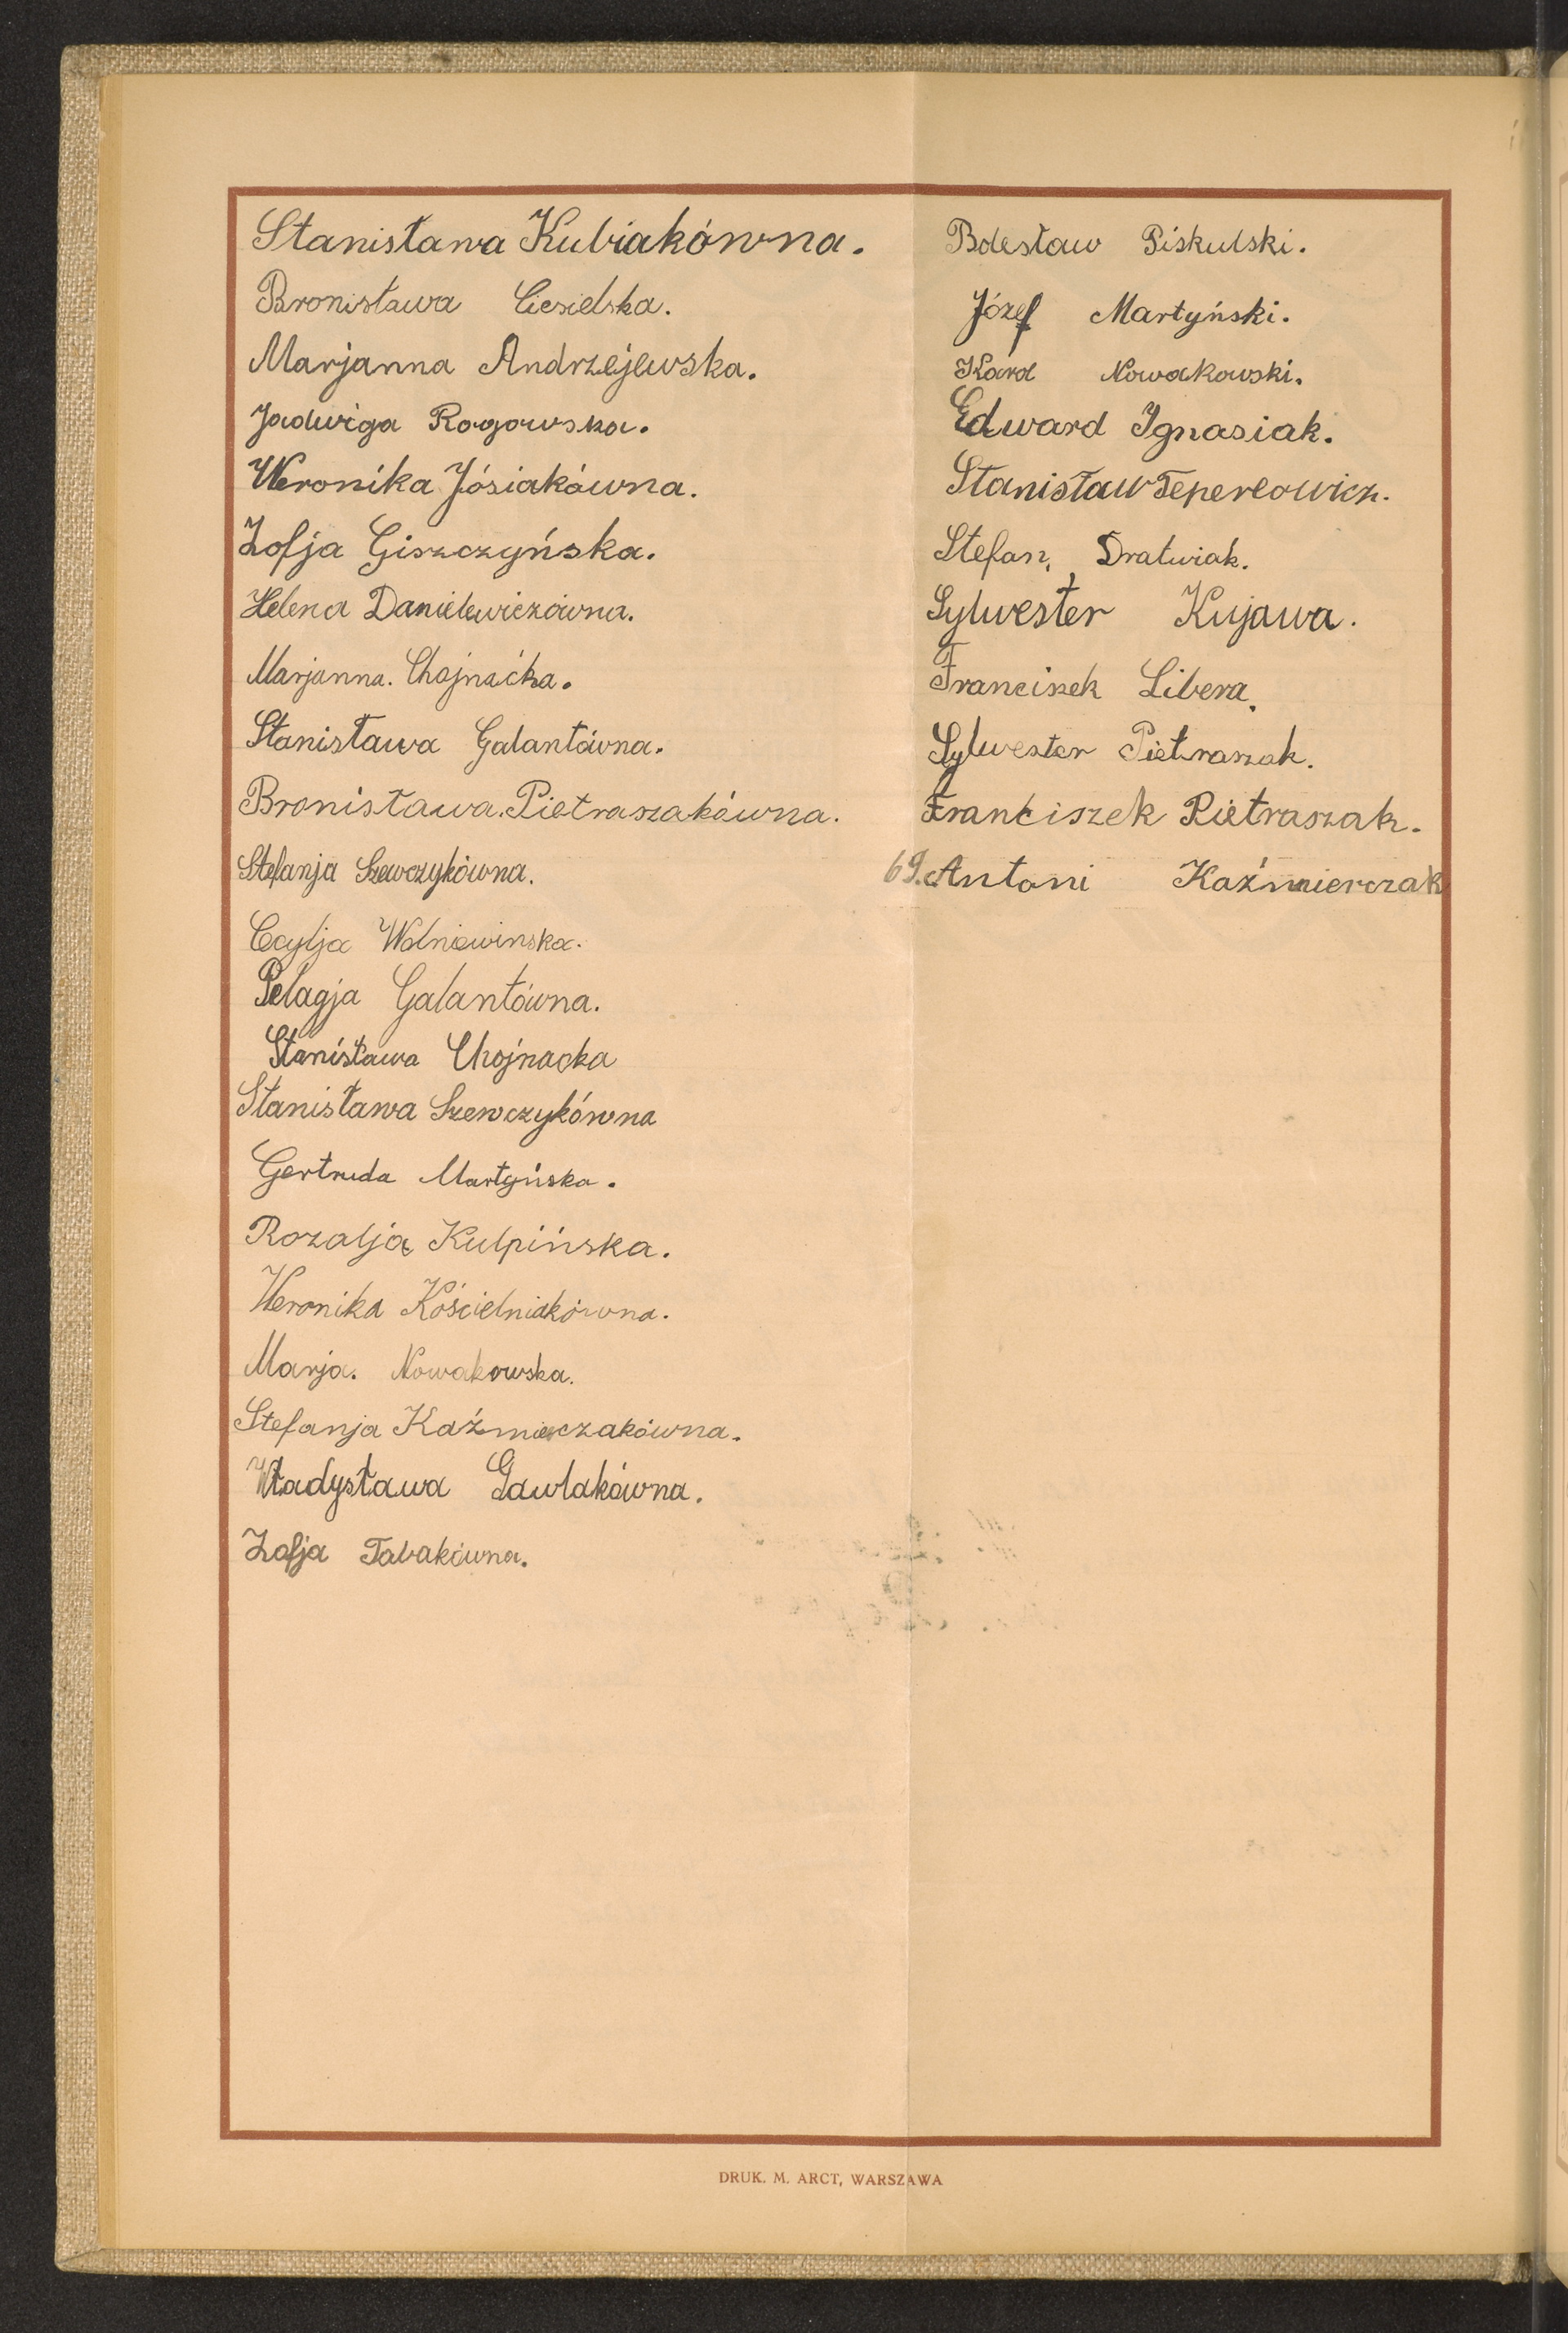 Stanisława Kubiakówna.
Bronisława Ciesielska.
Marjanna Andrzejewska.
Jadwiga Rogowska.
Weronika Jósiakówna.
Zofja Giszczyńska.
Helena Danielewiczówna.
Marjanna. Chojnacka.
Stanisława Galantówna.
Bronisława. Pietraszakówna.
Stefanja Szewczykówna.
Cecylja Wolniewinska.
Pelagja Galantówna.
Stanisława Chojnacka
Stanisława Szewczykówna
Gertruda Martyńska.
Rozalja Kulpińska.
Weronika Kościelniakówna.
Marja. Nowakowska.
Stefanja Kaźmierczakówna.
Władysława Gawlakówna.
Zofja Tabakówna.
Bolesław Piskulski.
Józef Martyński.
Karol Nowakowski.
Edward Ignasiak.
Stanisław Teperlowicz.
Stefan, Dratwiak.
Sylwester Kujawa.
Franciszek Libera.
Sylwester Pietraszak.
Franciszek Pietraszak.
69. Antoni Kaźmierczak
DRUK. M. ARCT, WARSZAWA